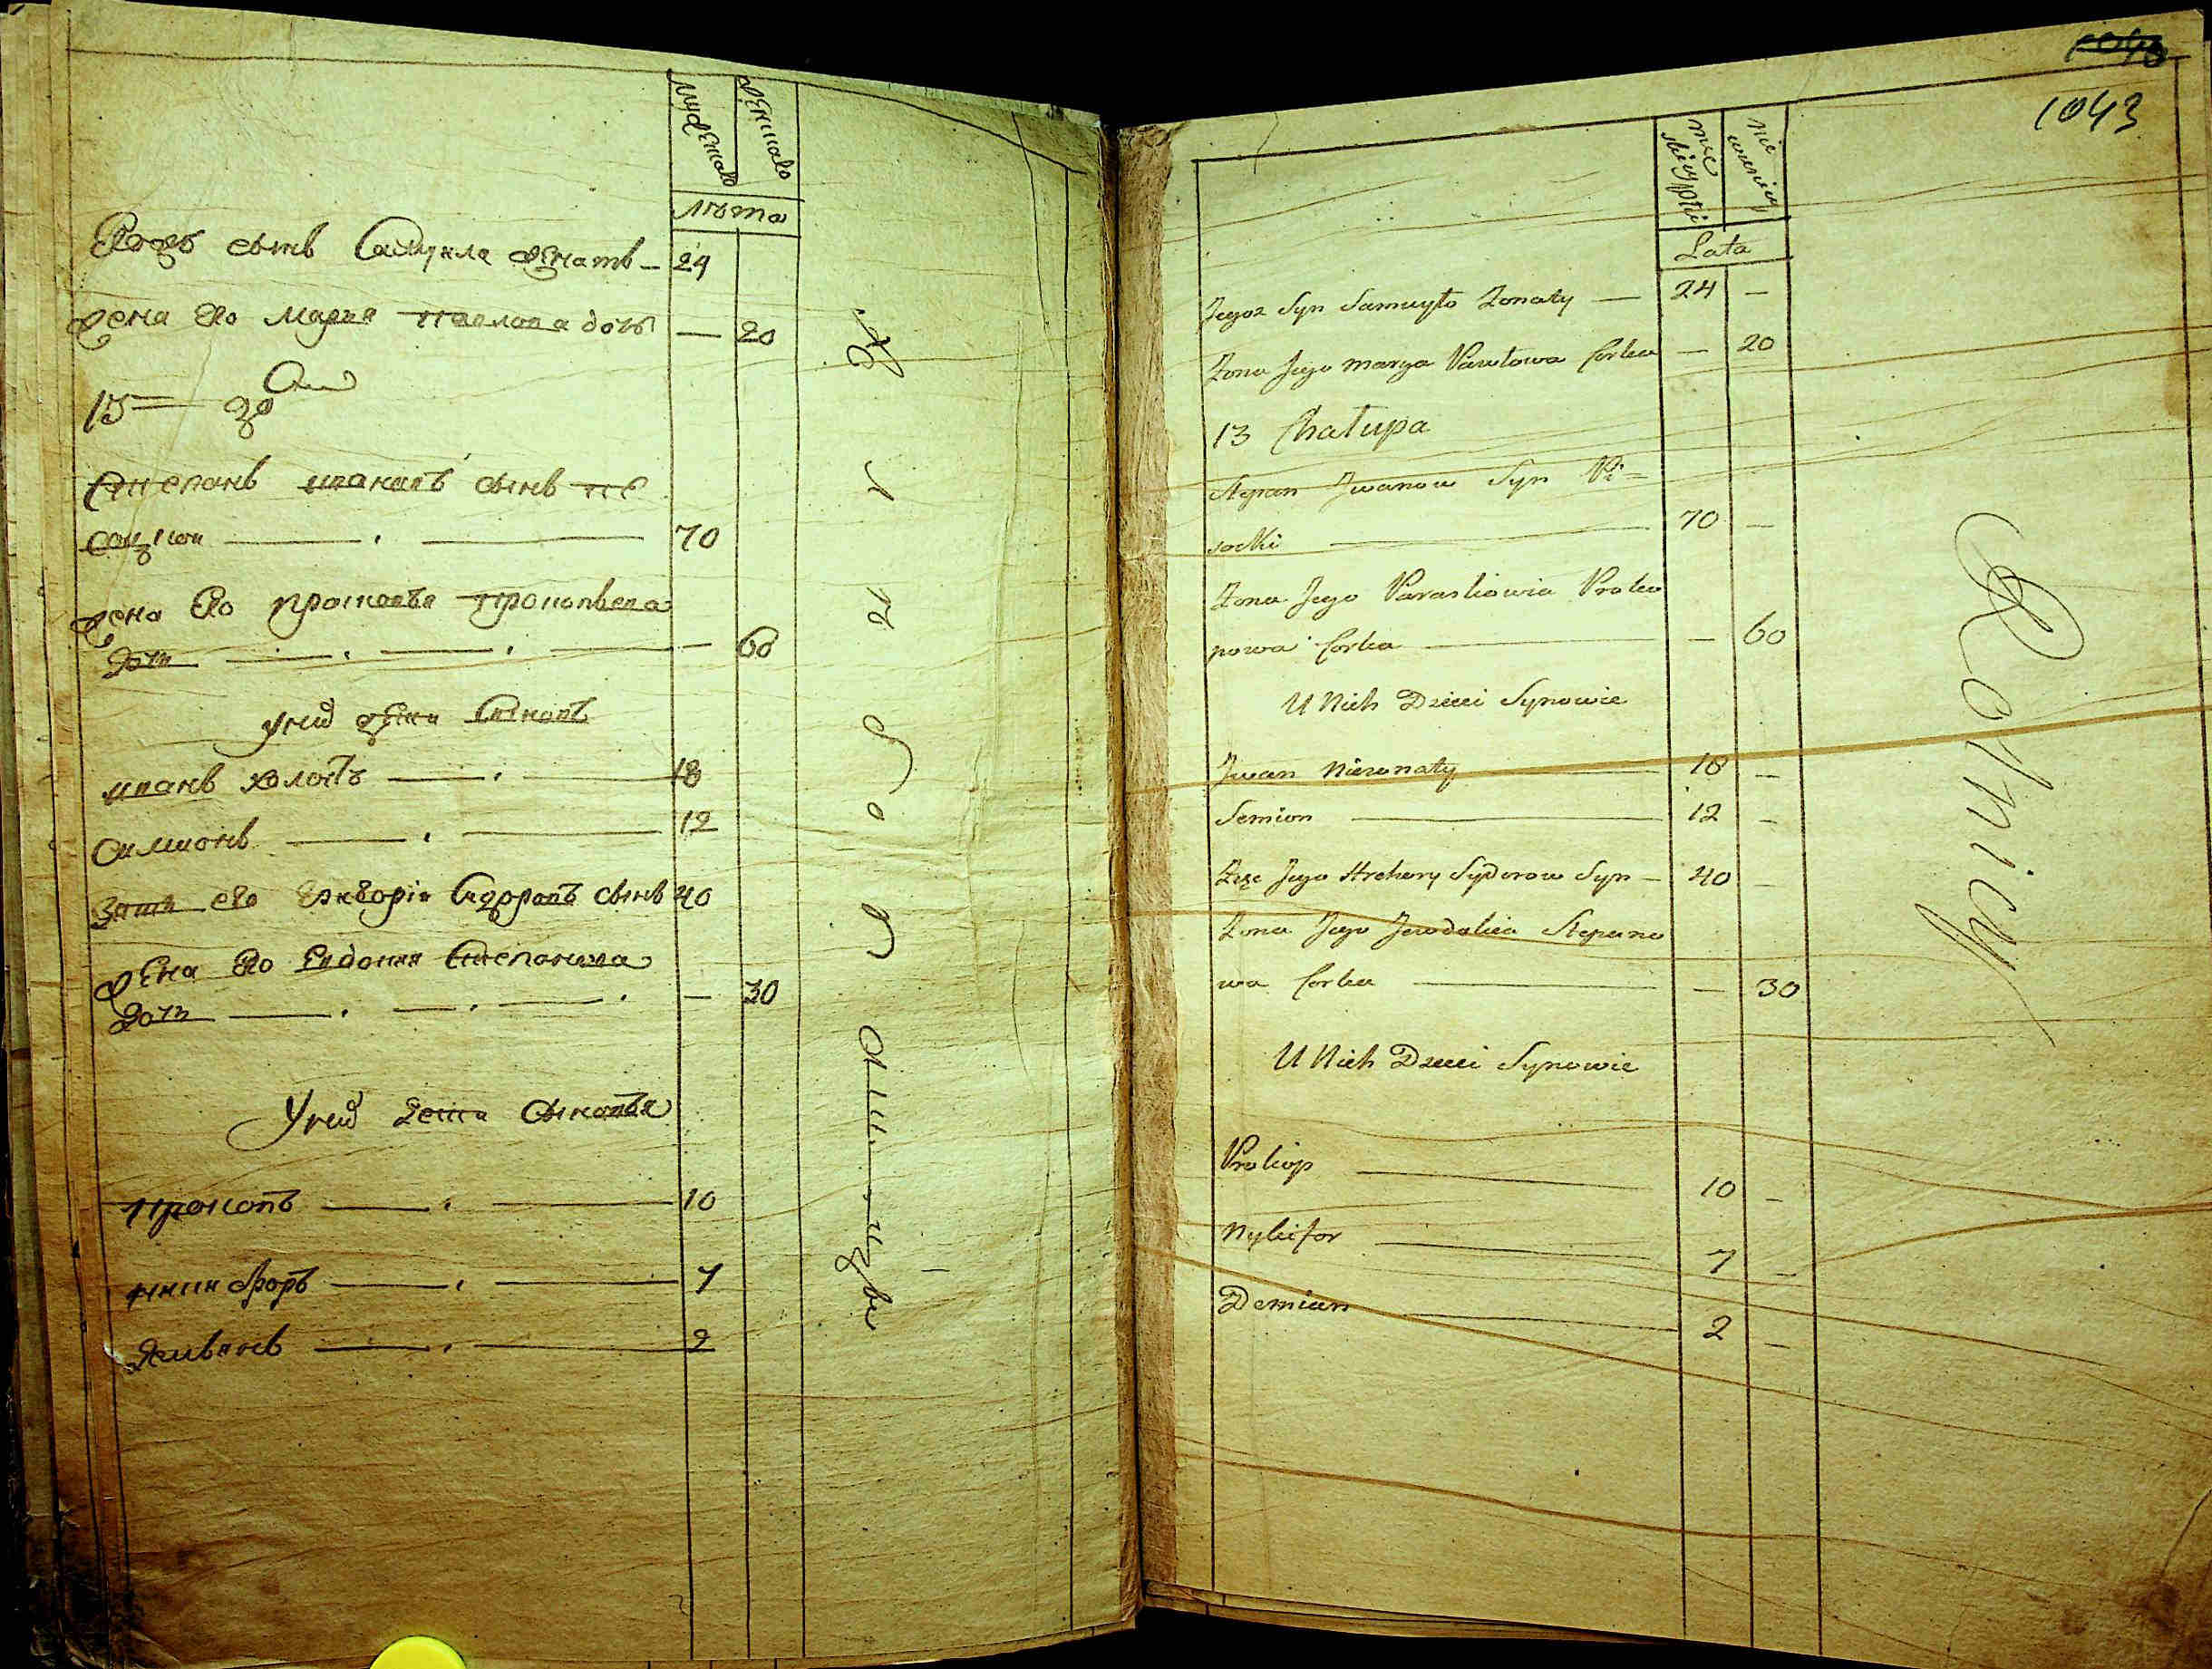 мужеска
женска
лѣта
Егожъ сынъ Самуила женатъ — 24
жена Его Мария павлова дочь — 20
13 — Ха
Степанъ ивановъ сынъ пе
соцкии — 70
жена Его прасковья прокопьева
дочь — 60
у нихъ дети Сыновъ
иванъ холостъ — 18
Симионъ — 12
зять его Григорiи Сидоровъ сынъ 40
жена Его Евдокия Степанова
дочь — 30
У нихъ дети Сыновья
прокопъ — 10
никифоръ — 7
Демьянъ — 2
1043
męskiey płci
Lata
Jegoż Syn Samuyło Żonaty — 24 —
Żona Jego Marya Pawłowa Corka — 20
13 Chałupa
Stepan Jwanow Syn Pi=
socki — 70 —
Żona Jego Paraskiowia Proko
powa Corka — — 60
U Nich Dzieci Synowie
Jwan Nieżonaty — 18 —
Semion — 12 —
Zięc Jego Hrehory Sydorow Syn — 40 —
Żona Jego Jewdokia Stepano
wa Corka — — 30
U Nich Dzieci Synowie
Prokop — 10 —
Nykifor — 7 —
Demian — 2 —
Rolnicy